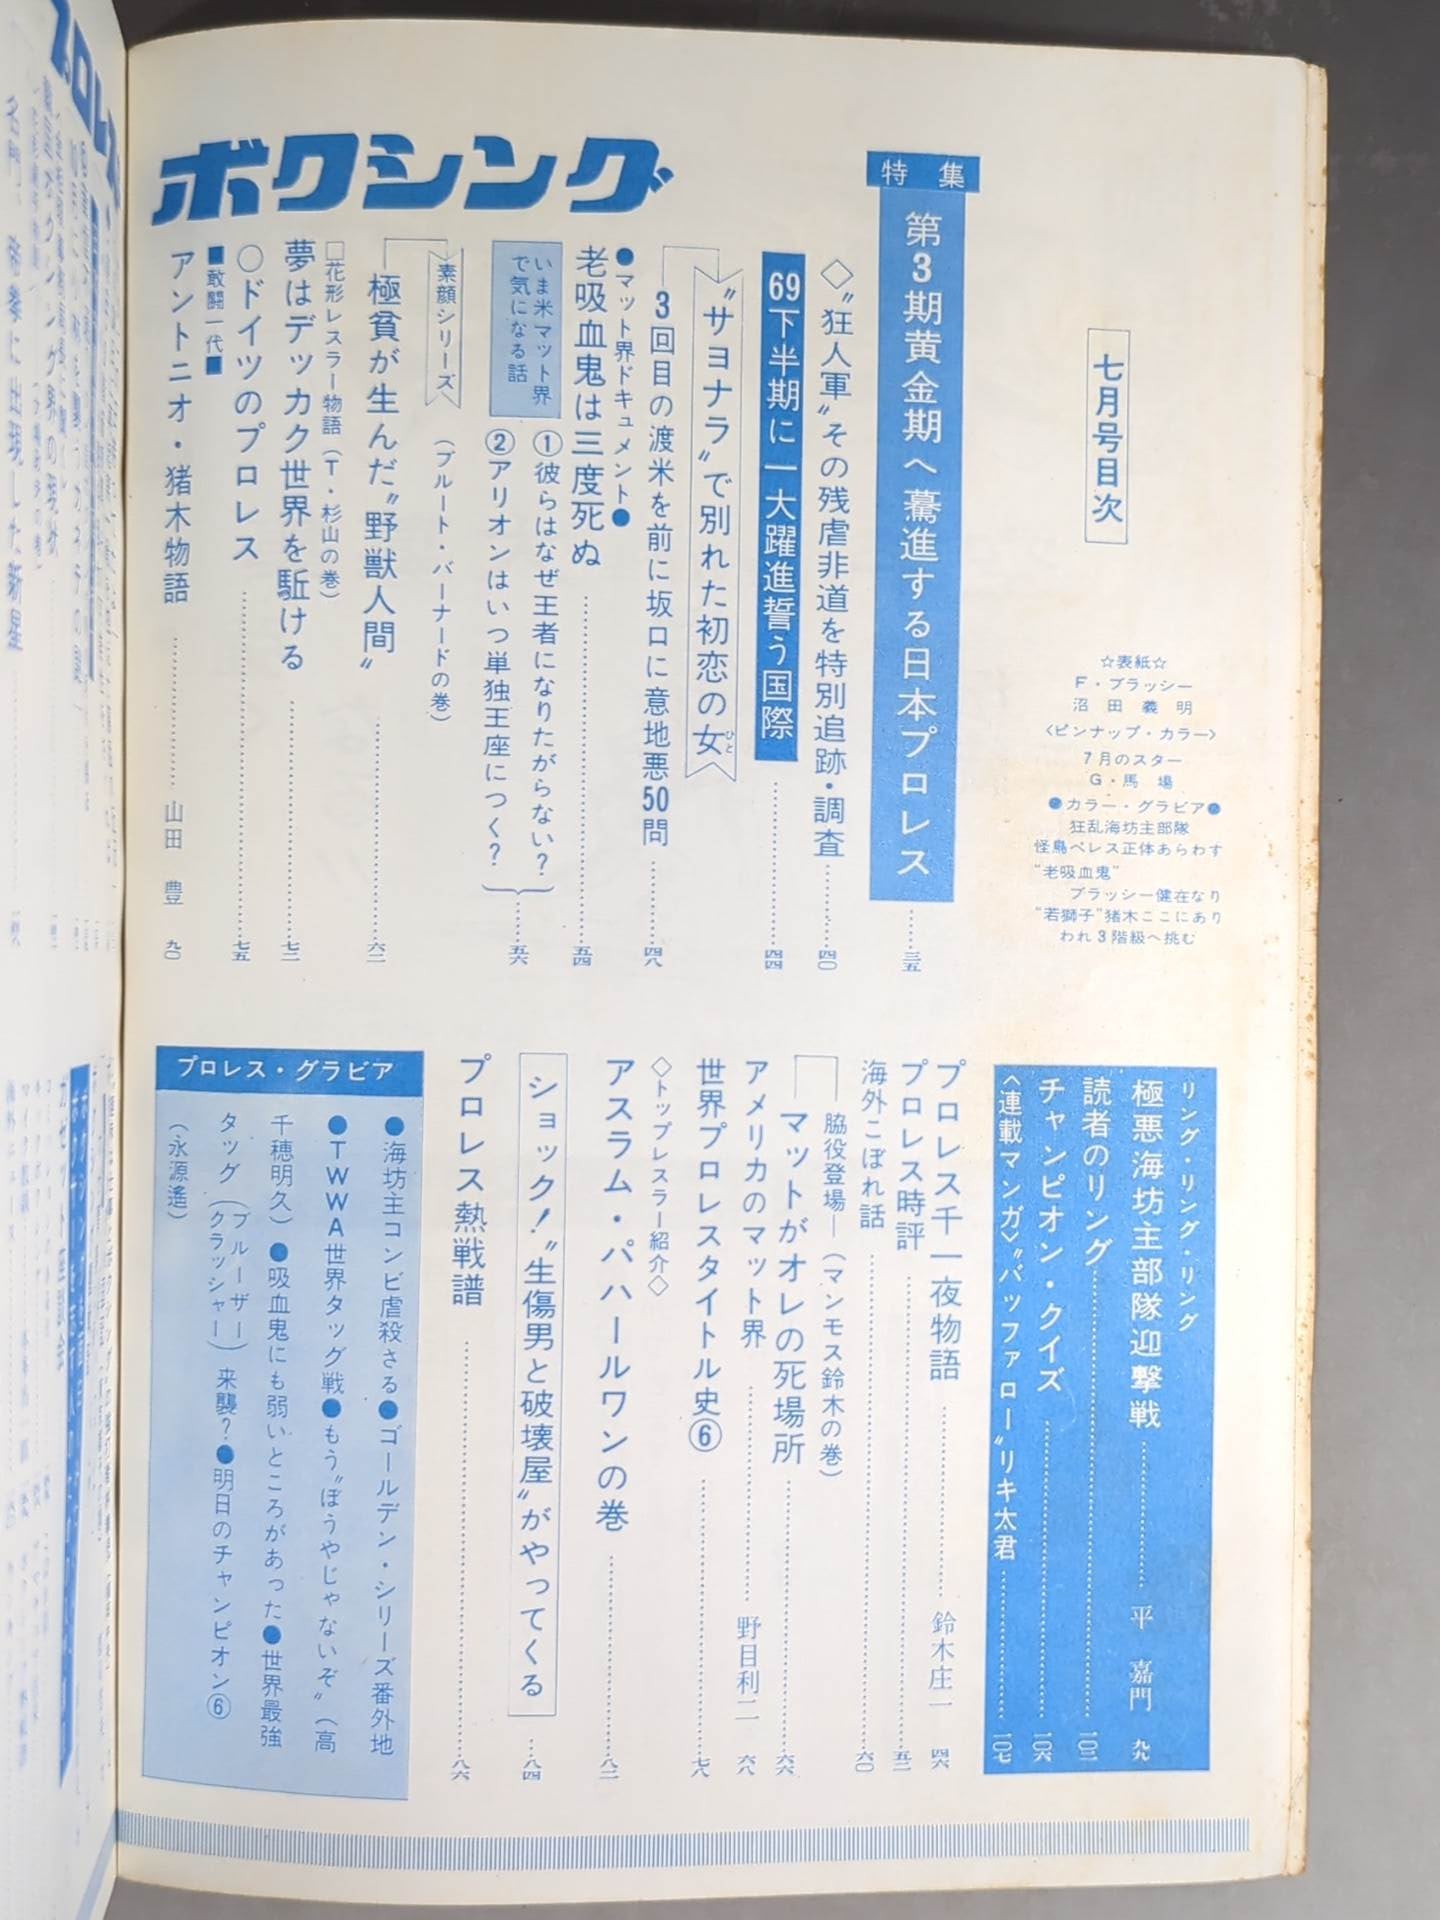 ボクシング
七月号目次
☆表紙☆
F・ブラッシー
沼田義明
〈ピンナップ・カラー〉
7月のスター
G・馬場
●カラー・グラビア●
狂乱海坊主部隊
怪鳥ペレス正体あらわす
"老吸血鬼"
ブラッシー健在なり
"若獅子"猪木ここにあり
われ3階級へ挑む
特集
第3期黄金期へ驀進する日本プロレス……三五
◇"狂人軍"その残虐非道を特別追跡・調査……四〇
69下半期に一大躍進誓う国際……四四
"サヨナラ"で別れた初恋の女
ひと
3回目の渡米を前に坂口に意地悪50問……四八
●マット界ドキュメント●
老吸血鬼は三度死ぬ……五四
いま米マット界
で気になる話
①彼らはなぜ王者になりたがらない?
②アリオンはいつ単独王座につく?……五六
素顔シリーズ
(ブルート・バーナードの巻)
極貧が生んだ"野獣人間"……六二
□花形レスラー物語(T・杉山の巻)
夢はデッカク世界を駈ける……七二
○ドイツのプロレス……七五
■敢闘一代■
アントニオ・猪木物語……山田 豊 九〇
リング・リング・リング
極悪海坊主部隊迎撃戦……平 嘉門 九九
読者のリング……一〇二
チャンピオン・クイズ……一〇六
〈連載マンガ〉"バッファロー"リキ太君……一〇七
プロレス千一夜物語……鈴木庄一 四六
プロレス時評……五二
海外こぼれ話……六〇
脇役登場―(マンモス鈴木の巻)
マットがオレの死場所……六六
アメリカのマット界……野目利二 六八
世界プロレスタイトル史⑥……七八
◇トップレスラー紹介◇
アスラム・パハールワンの巻……八二
ショック!"生傷男と破壊屋"がやってくる……八四
プロレス熱戦譜……八六
プロレス・グラビア
●海坊主コンビ虐殺さる●ゴールデン・シリーズ番外地
●TWWA世界タッグ戦●もう"ぼうやじゃないぞ"(高
千穂明久)●吸血鬼にも弱いところがあった●世界最強
タッグ(ブルーザー クラッシャー)来襲?●明日のチャンピオン⑥
(永源遙)